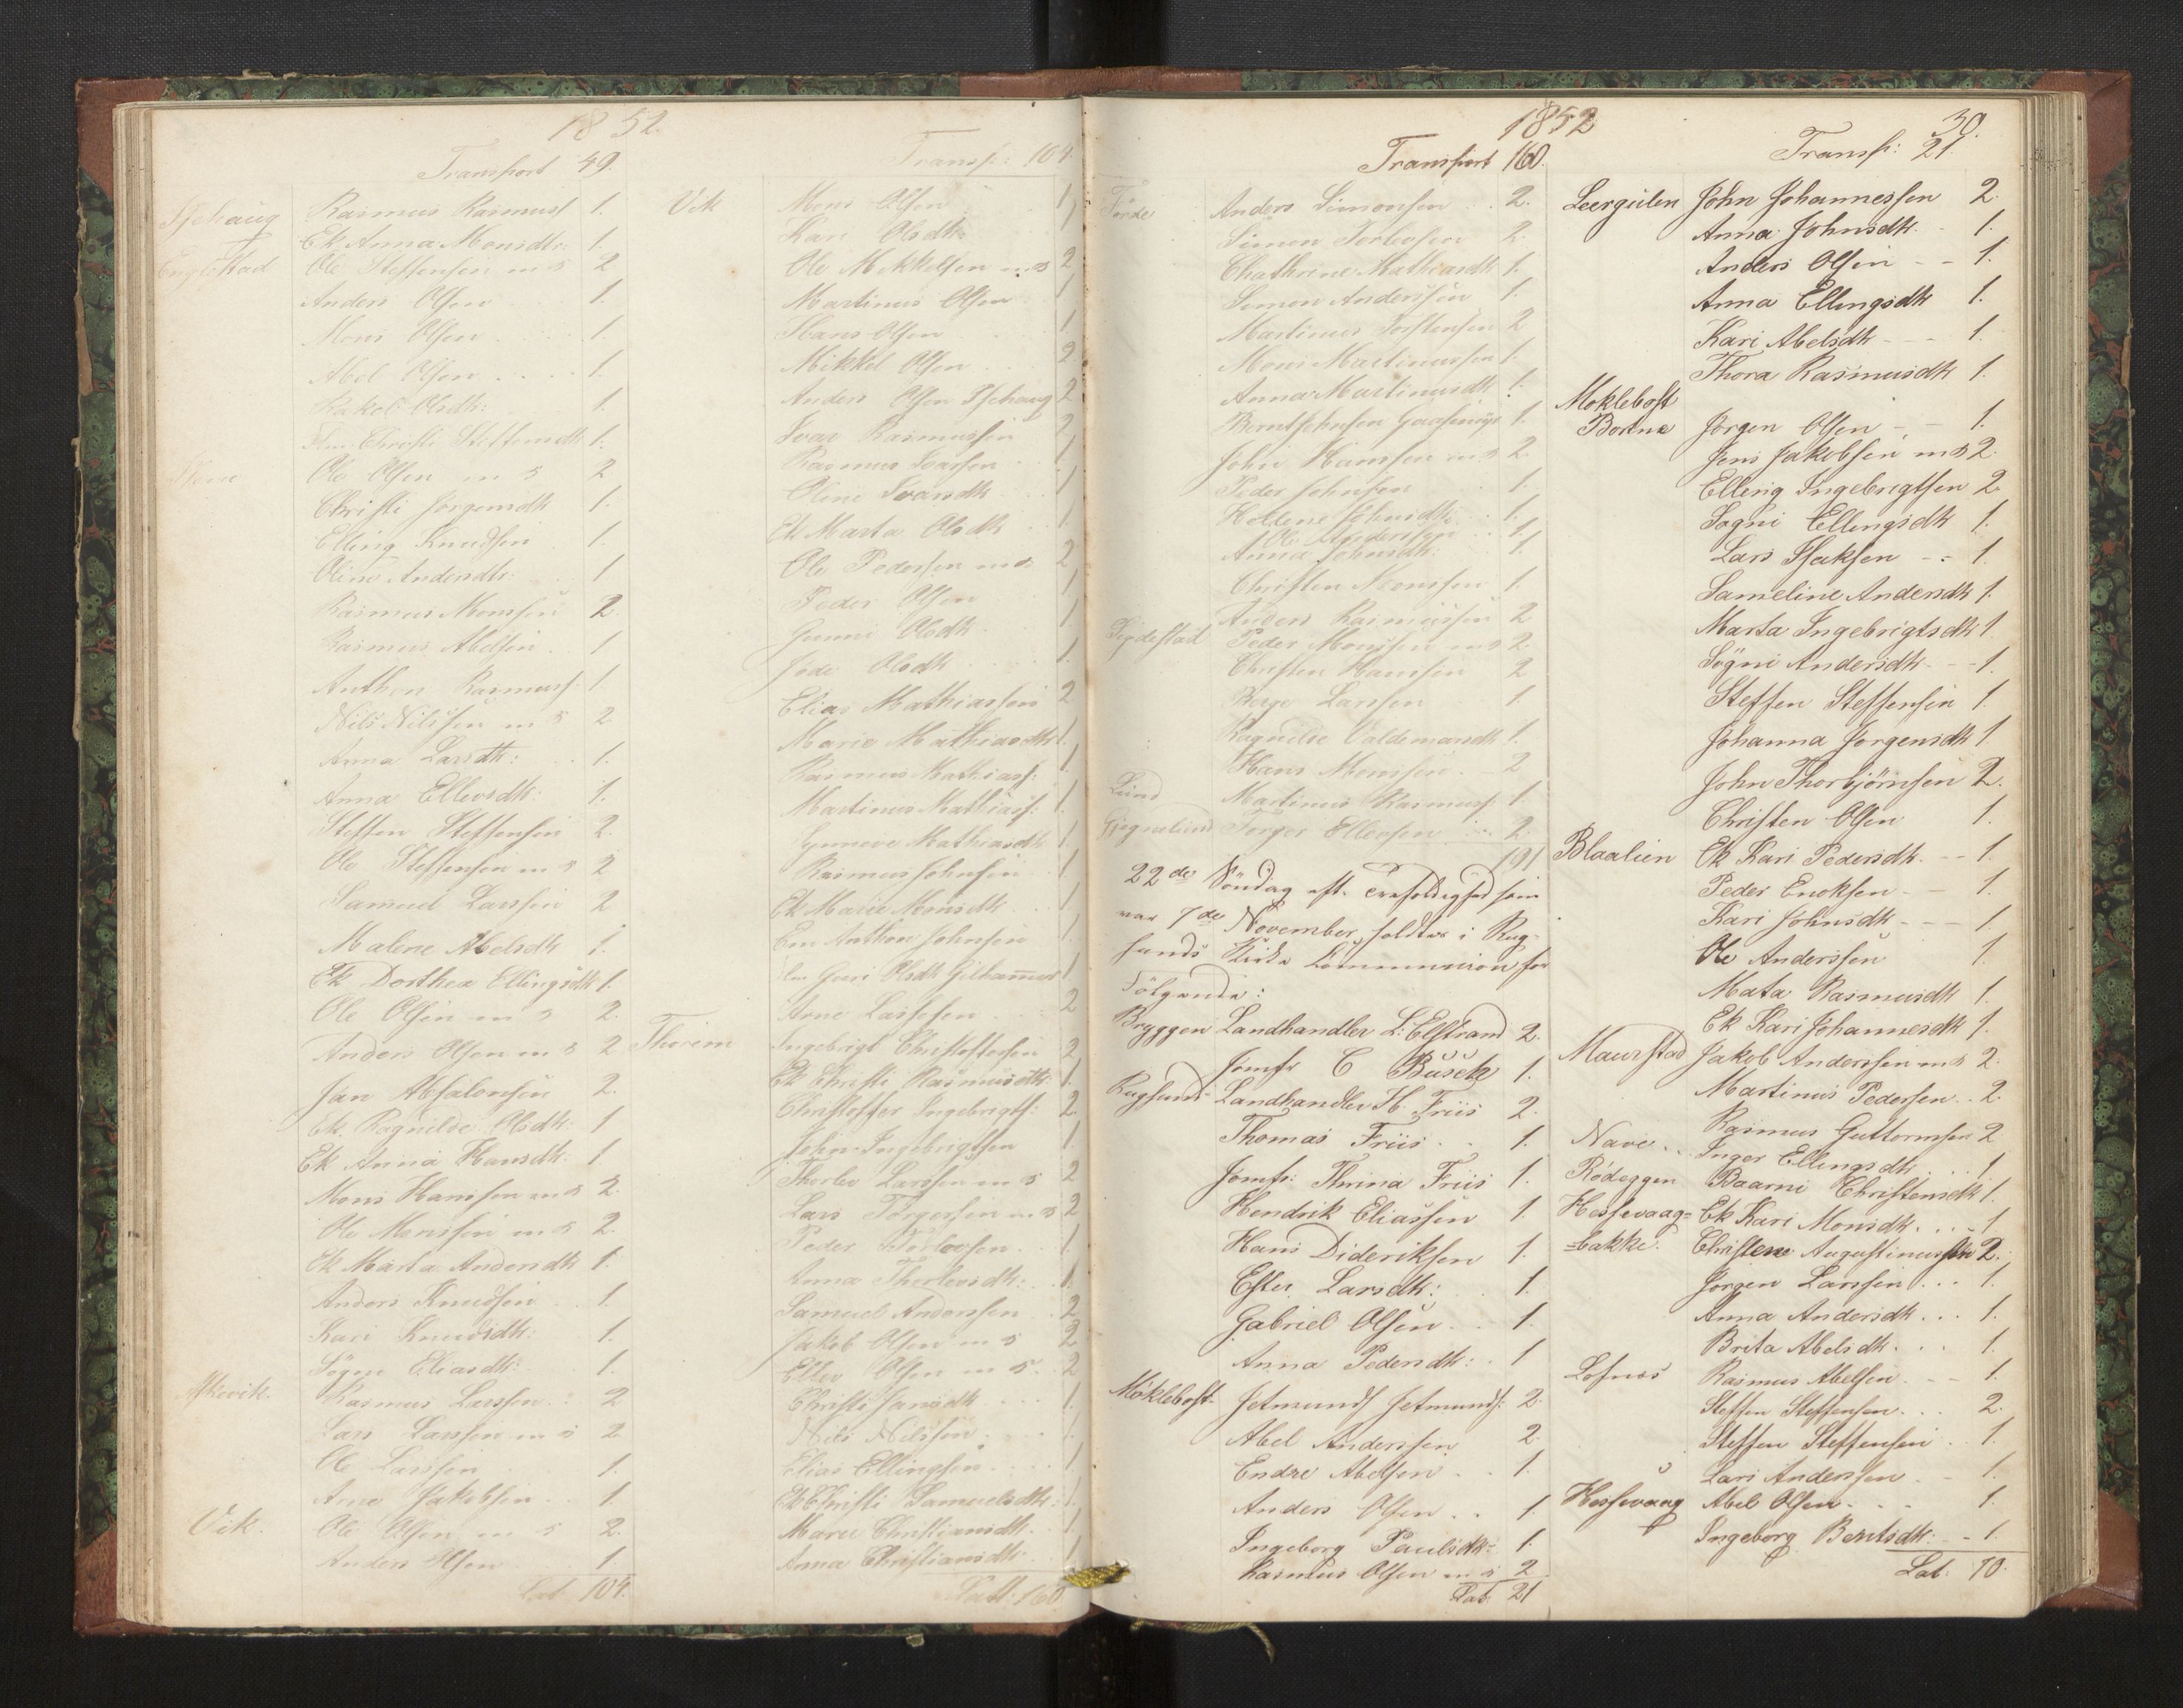 1852.
Transport 49.
Rasmus Rasmuss 1.
Ek Anna Monsdtr: 1.
Ole Steffensen m s 2
Anders Olsen 1.
Mons Olsen 1.
Abel Olsen 1.
Rakel Olsdtr: 1.
Christi Steffensdtr 1.
Ole Olsen m s 2
Christi Jörgensdtr 1.
Elling Knudsen 1.
Oline Andersdtr: 1
Rasmus Monssen 2.
Rasmus Abelsen 1
Anthon Rasmuss: 1
Nils Nilssen m s 2
Anna Larsdtr: 1.
Anna Ellevsdtr: 1.
Steffen Steffensen 2.
Ole Steffensen m s 2
Samuel Larssen 2
Malene Abelsdtr 1.
Ek Dorthea Ellingsdtr 1.
Ole Olsen m s 2.
Anders Olsen m s 2
Jan Absalonsen 2.
Ek. Ragnilde Olsdtr: 1
Ek Anna Hansdtr. 1
Mons Hanssen m s 2.
Ole Monssen m s 2.
Ek Marta Andersdtr 1.
Anders Knudsen 1.
Kari Knudsdtr: 1.
Sögni Eliasdtr: 1.
Rasmus Larssen 2
Lars Larssen m s 2
Ole Larssen 1.
Arne Jakobsen 1.
Vik. Ole Olsen m s 2.
Anders Olsen 1.
Lat 104.
Transp: 104
Vik Mons Olsen 1
Kari Olsdtr 1
Ole Mikkelsen m s 2
Martinus Olsen 1
Hans Olsen 1
Mikkel Olsen 2
Anders Olsen 2
Ivar Rasmussen 2
Rasmus Ivarsen 1
Oline Ivarsdtr 1
Ek Marta Olsdtr 1
Ole Pedersen m s 2
Peder Olsen 1
Gunni Olsdtr 1
Olsdtr 1.
Elias Mathiassen 2
Marie Mathiasdtr 1.
Rasmus Mathiass: 1
Martinus Mathiass: 1.
Synneve Mathiasdtr 1
Rasmus Johnsen 1
Ek Marie Monsdtr 1
Em Anthon Johnsen 1
Olsdtr 1
Arne Lassesen 2
Ingebrigt Christoffersen 2
Ek Christi Rasmusdtr 1.
Christoffer Ingebrigts: 2
John Ingebrigtsen 1
Thorlev Larssen m s 2
Lars Torgersen m s 2
Peder 1
Anna Thorlevsdtr: 1
Samuel Anderssen 2
Jakob Olsen m s 2
Ellev Olsen m s 2
Christi Jansdtr 1.
Nils Nilssen 1
Elias Ellingsen 1
Ek Christi Samuelsdtr: 1.
Marie Christiansdtr. 1
Anna Christiansdtr. 1
Latt: 160
1852
Transport 160.
Förde Anders Simonsen 2.
Simon Torlevsen 2.
Chathrine Mathiasdtr 1.
Simon Anderssen 1.
Martinus Torstensen 2
Mons Martinussen 1.
Anna Martinusdtr 1.
Bernt Johnsen 1.
John Hanssen m s 2
Peder Johnsen 1.
Helene Johnsdtr: 1.
Ole Anderssen 1
Anna Johnsdtr: 1.
Christen Monssen 1.
Anders Rasmussen 2
Peder Monssen m s 2.
Christen Hanssen 2
Börge Larssen 1
Ragnilde Valdemarsdtr 1.
Hans Monssen 2
Lund Martinus Rasmuss: 1.
Torger Ellevsen 2.
191
22de Söndag eft. Trefoldighed som
var 7de November, holdtes i Rug-
sunds Kirke Communion for
Fölgende:
Bryggen Landhandler L: Elstrand 2.
Jomfr C Büsch 1.
Rugsund Landhandler H. Friis 2.
Thomas Friis 1.
Jomfr: Thrina Friis 1.
Hendrik Eliassen 1.
Hans Dideriksen 1.
Ester Larsdtr: 1.
Gabriel Olsen 1.
Anna Pedersdtr: 1
Möklebost Jetmund Jetmunds: 2.
Abel Anderssen 2.
Endre Abelsen 1.
Anders Olsen 1.
Ingeborg Paulsdtr: 1.
Rasmus Olsen m s 2
Lat. 21
30.
Transp: 21.
Leergülen John Johannessen 2.
Anna Johnsdtr. 1.
Anders Olsen 1.
Anna Ellingsdtr 1.
Kari Abelsdtr 1.
Thora Rasmusdtr 1.
Moklebost
Bortne Jörgen Olsen 1.
Jens Jakobsen m s 2.
Elling Ingebrigtsen 2.
Sögni Ellingsdtr 1.
Lars Isaksen 1.
Sameline Andersdtr 1.
Marta Ingebrigtsdtr 1.
Sögni Andersdtr 1.
Steffen Steffensen 1.
Johanna Jörgensdtr 1
John Thorbjörnsen 2.
Christen Olsen 1.
Blaalien Ek Kari Pedersdtr. 1.
Peder Enoksen 1.
Kari Johnsdtr 1
Ole Anderssen 1.
Mata Rasmusdtr 1.
Ek Kari Johannesdtr 1.
Maurstad Jakob Anderssen m s 2.
Martinus Pedersen 2.
Rasmus Guttormsen 2
Nave Inger Ellingsdtr 1
Rödeggen Baarni Christensdtr 1.
Hessevaag= Ek Kari Monsdtr. 1
=bakke. Christen Augustinussen 2.
Jörgen Larssen 1.
Anna Andersdtr 1.
Brita Abelsdtr. 1.
Lofnæs Rasmus Abelsen 1.
Steffen Steffensen 2.
Steffen Steffensen 1.
Lars Anderssen 1.
Hessevaag Abel Olsen 1.
Ingeborg Berntsdtr: 1.
Lat: 70.